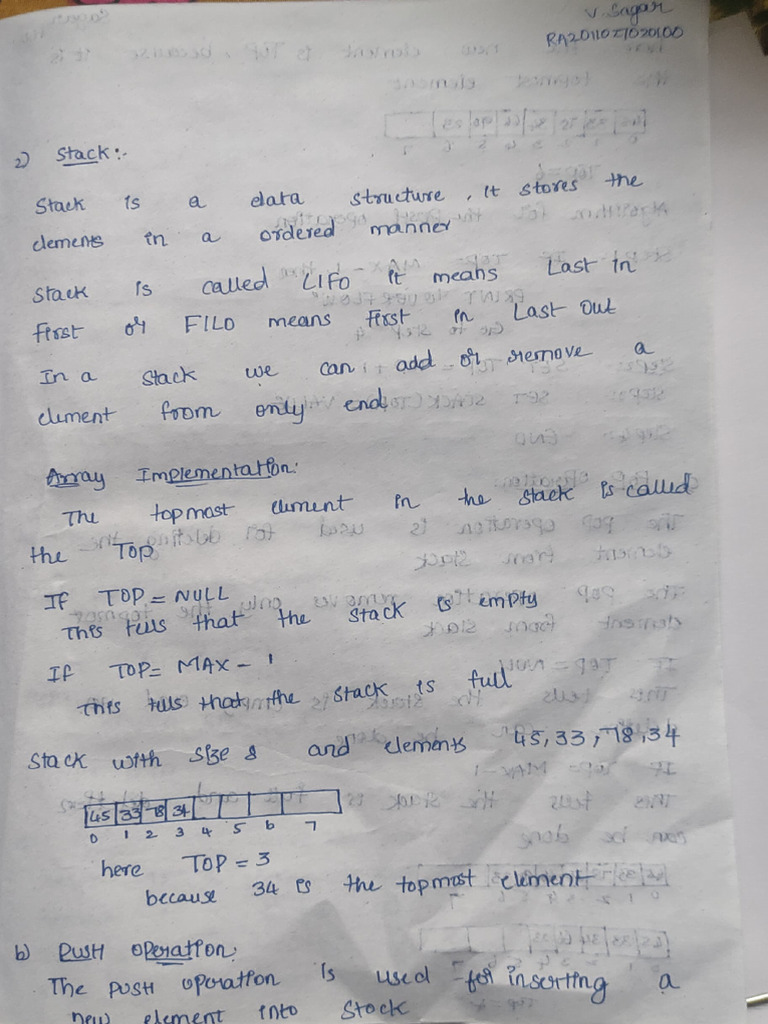 V. Sagar
RA2011027020100
2) Stack :-
Stack is a data structure, it stores the
elements in a ordered manner
Stack is called LIFO it means Last in
first or FILO means first in Last Out
In a stack we can add or remove a
element from only end
Array Implementation:
The topmost element in the stack is called
the TOP
If TOP = NULL
This tells that the stack is empty
If TOP = MAX - 1
This tells that the stack is full
Stack with size 8 and elements 45, 33, 78, 34
45 33 78 34
0 1 2 3 4 5 6 7
here TOP = 3
because 34 is the topmost element
b) PUSH Operation:
The PUSH operation is used for inserting a
new element into stock